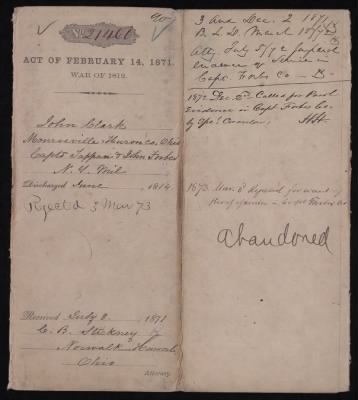 90
No. 21460
ACT OF FEBRUARY 14, 1871.
WAR OF 1812.
John Clark
Monroeville Huron Co, Ohio
Capts Tappan & John Forbes
N. Y. Mil
Discharged June 1814
Rejected 3 Mar 73
Received July 2, 1871
C. B. Stickney
Norwalk
Ohio
Attorney.
3 Aud Dec. 2 1871
B L D. March
Atty July 5/72
evidence of Service in
Capt Forbes Co
1872 Dec. Called for Best
Evidence in Capt Forbes Co.
by
1873 Mar. 3 Rejected for want of
Proof of service in Capt Forbes Co
Abandoned